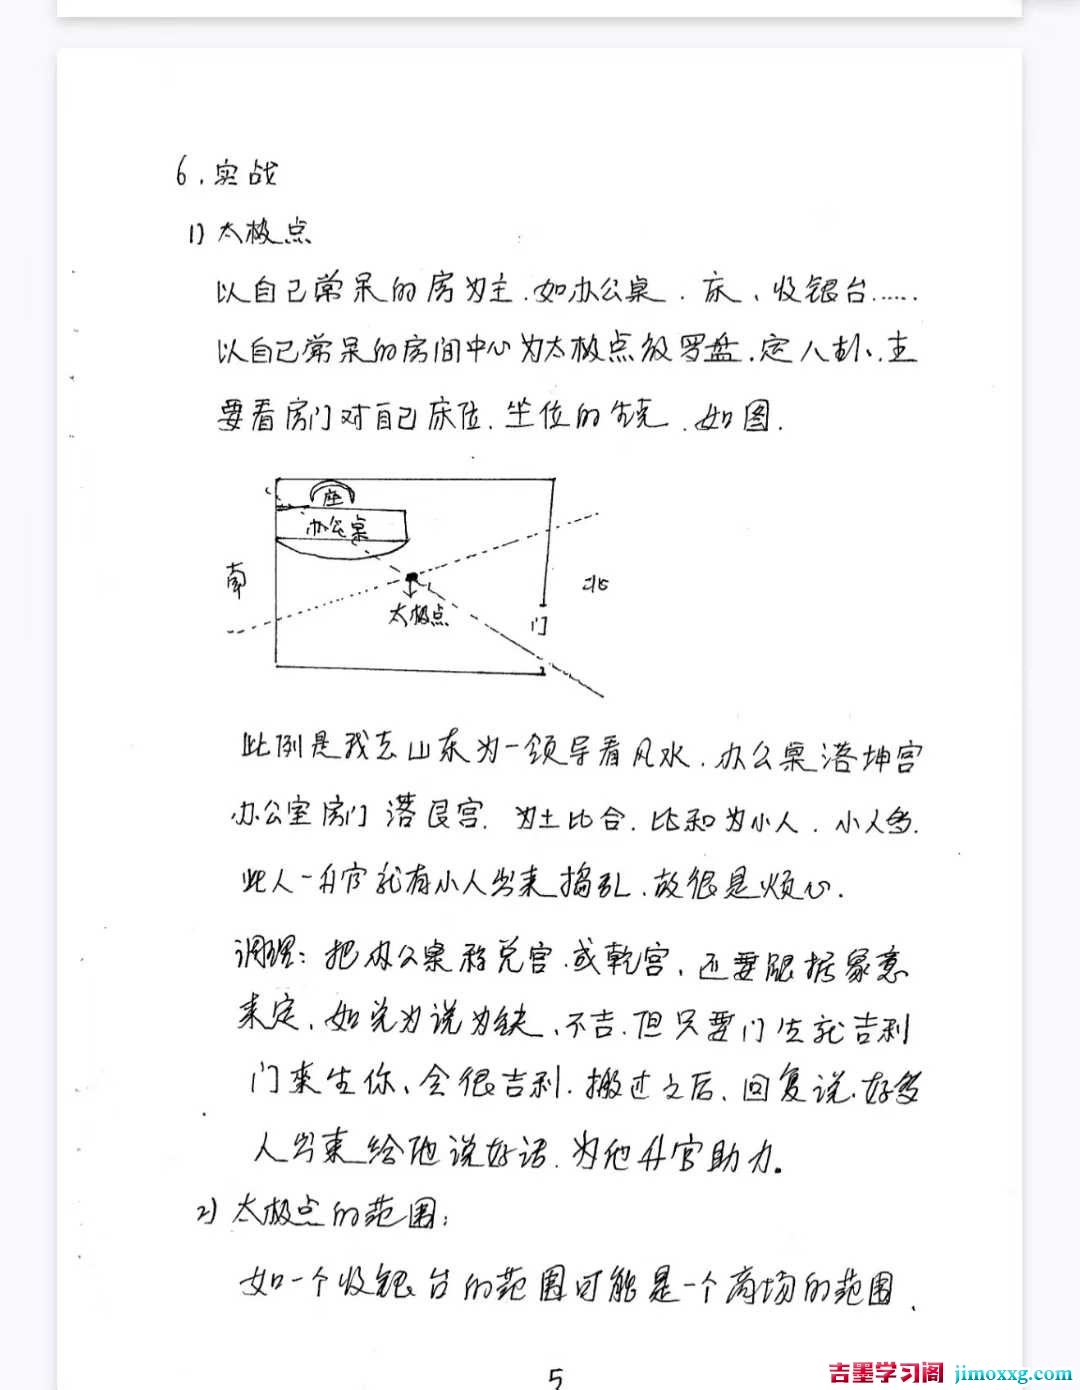 6.实战
1)太极点
以自己常呆的房为主.如办公桌.床、收银台……
以自己常呆的房间中心为太极点放罗盘.定八卦、主
要看房门对自己床位.坐位的生克.如图.
座
办公桌
南
北
太极点
门
此例是我去山东为一领导看风水.办公桌落坤宫
办公室房门落艮宫.为土比合.比和为小人.小人多.
此人一升官就有小人出来捣乱.故很是烦心.
调理:把办公桌移兑宫.或乾宫、还要跟据象意
来定、如兑为说为缺、不吉.但只要门生就吉利
门来生你、会很吉利.搬过之后、回复说.好多
人出来给他说好话.为他升官助力。
2)太极点的范围:
如一个收银台的范围可能是一个商场的范围、
5
吉墨学习阁 jimoxxg.com